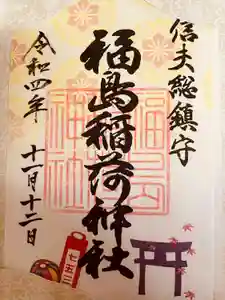 信夫総鎮守
福島稲荷神社
令和四年
十一月十二日
福島
稲荷
神社
七五三